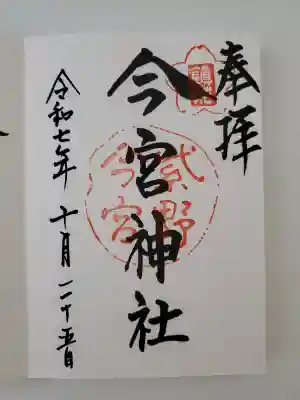 奉拝
今宮神社
令和七年 十月二十五日
貮野
今宮